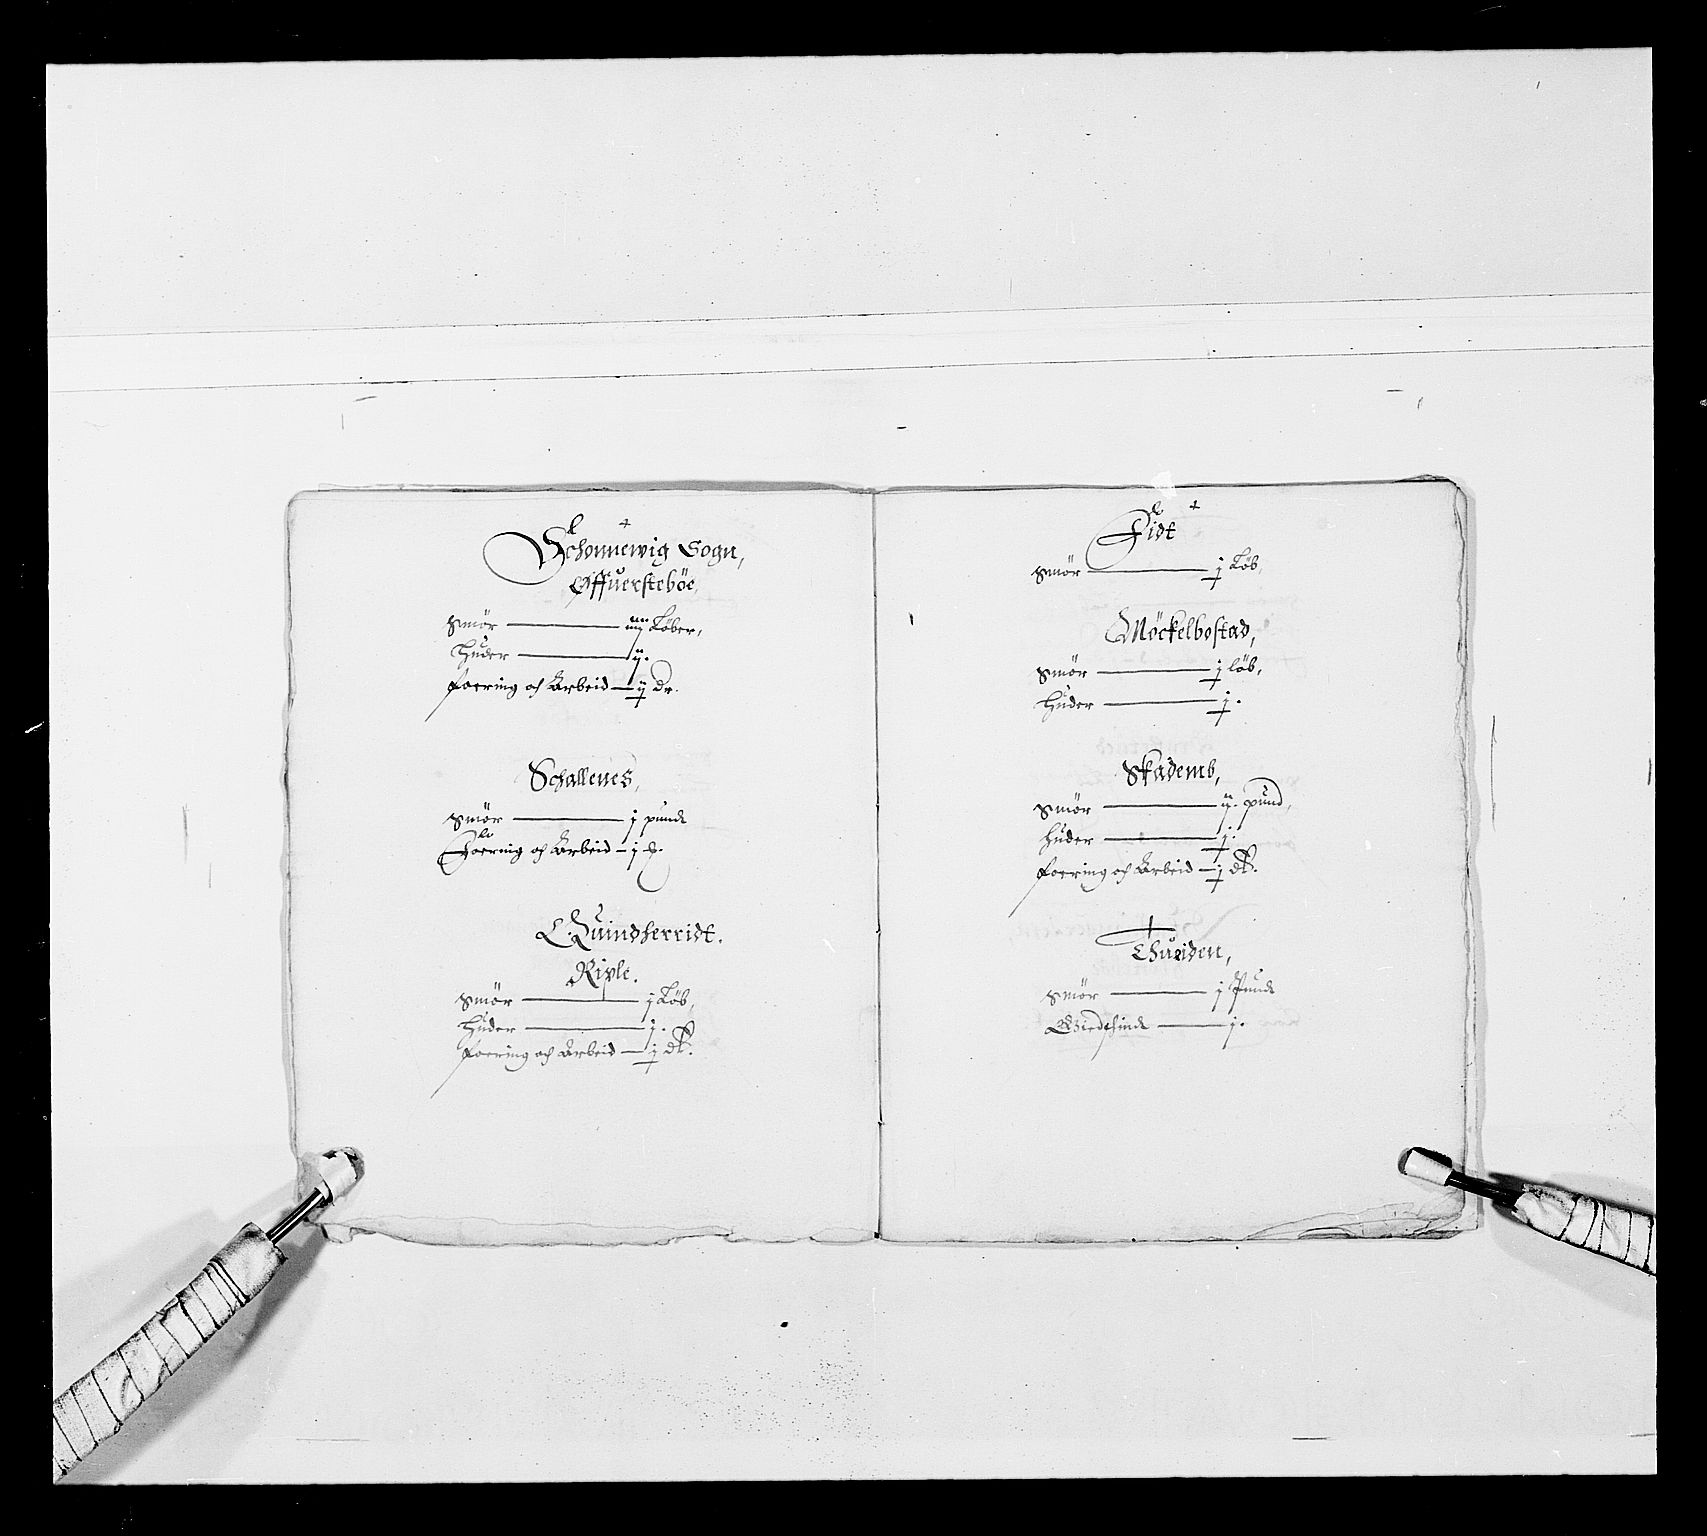 Schonnewig Sogn,
Offuersteböe,
Smör — iiij Löber,
Huder — ij.
foering och Arbeid — ij dr.
Schallenes,
Smör — j pund
Foering och Arbeid — j
Quindherridt.
Riple.
Smör — j Löb,
Huder — j.
foering och Arbeid — j dr.
Fidt
Smör — j Löb,
Möckelbostad,
Smör — j löb,
Huder — j.
Skademb,
Smör — ij. pund,
Huder — j.
foering och Arbeid — j dr.
Thueiden,
Smör — j Pund
— j.